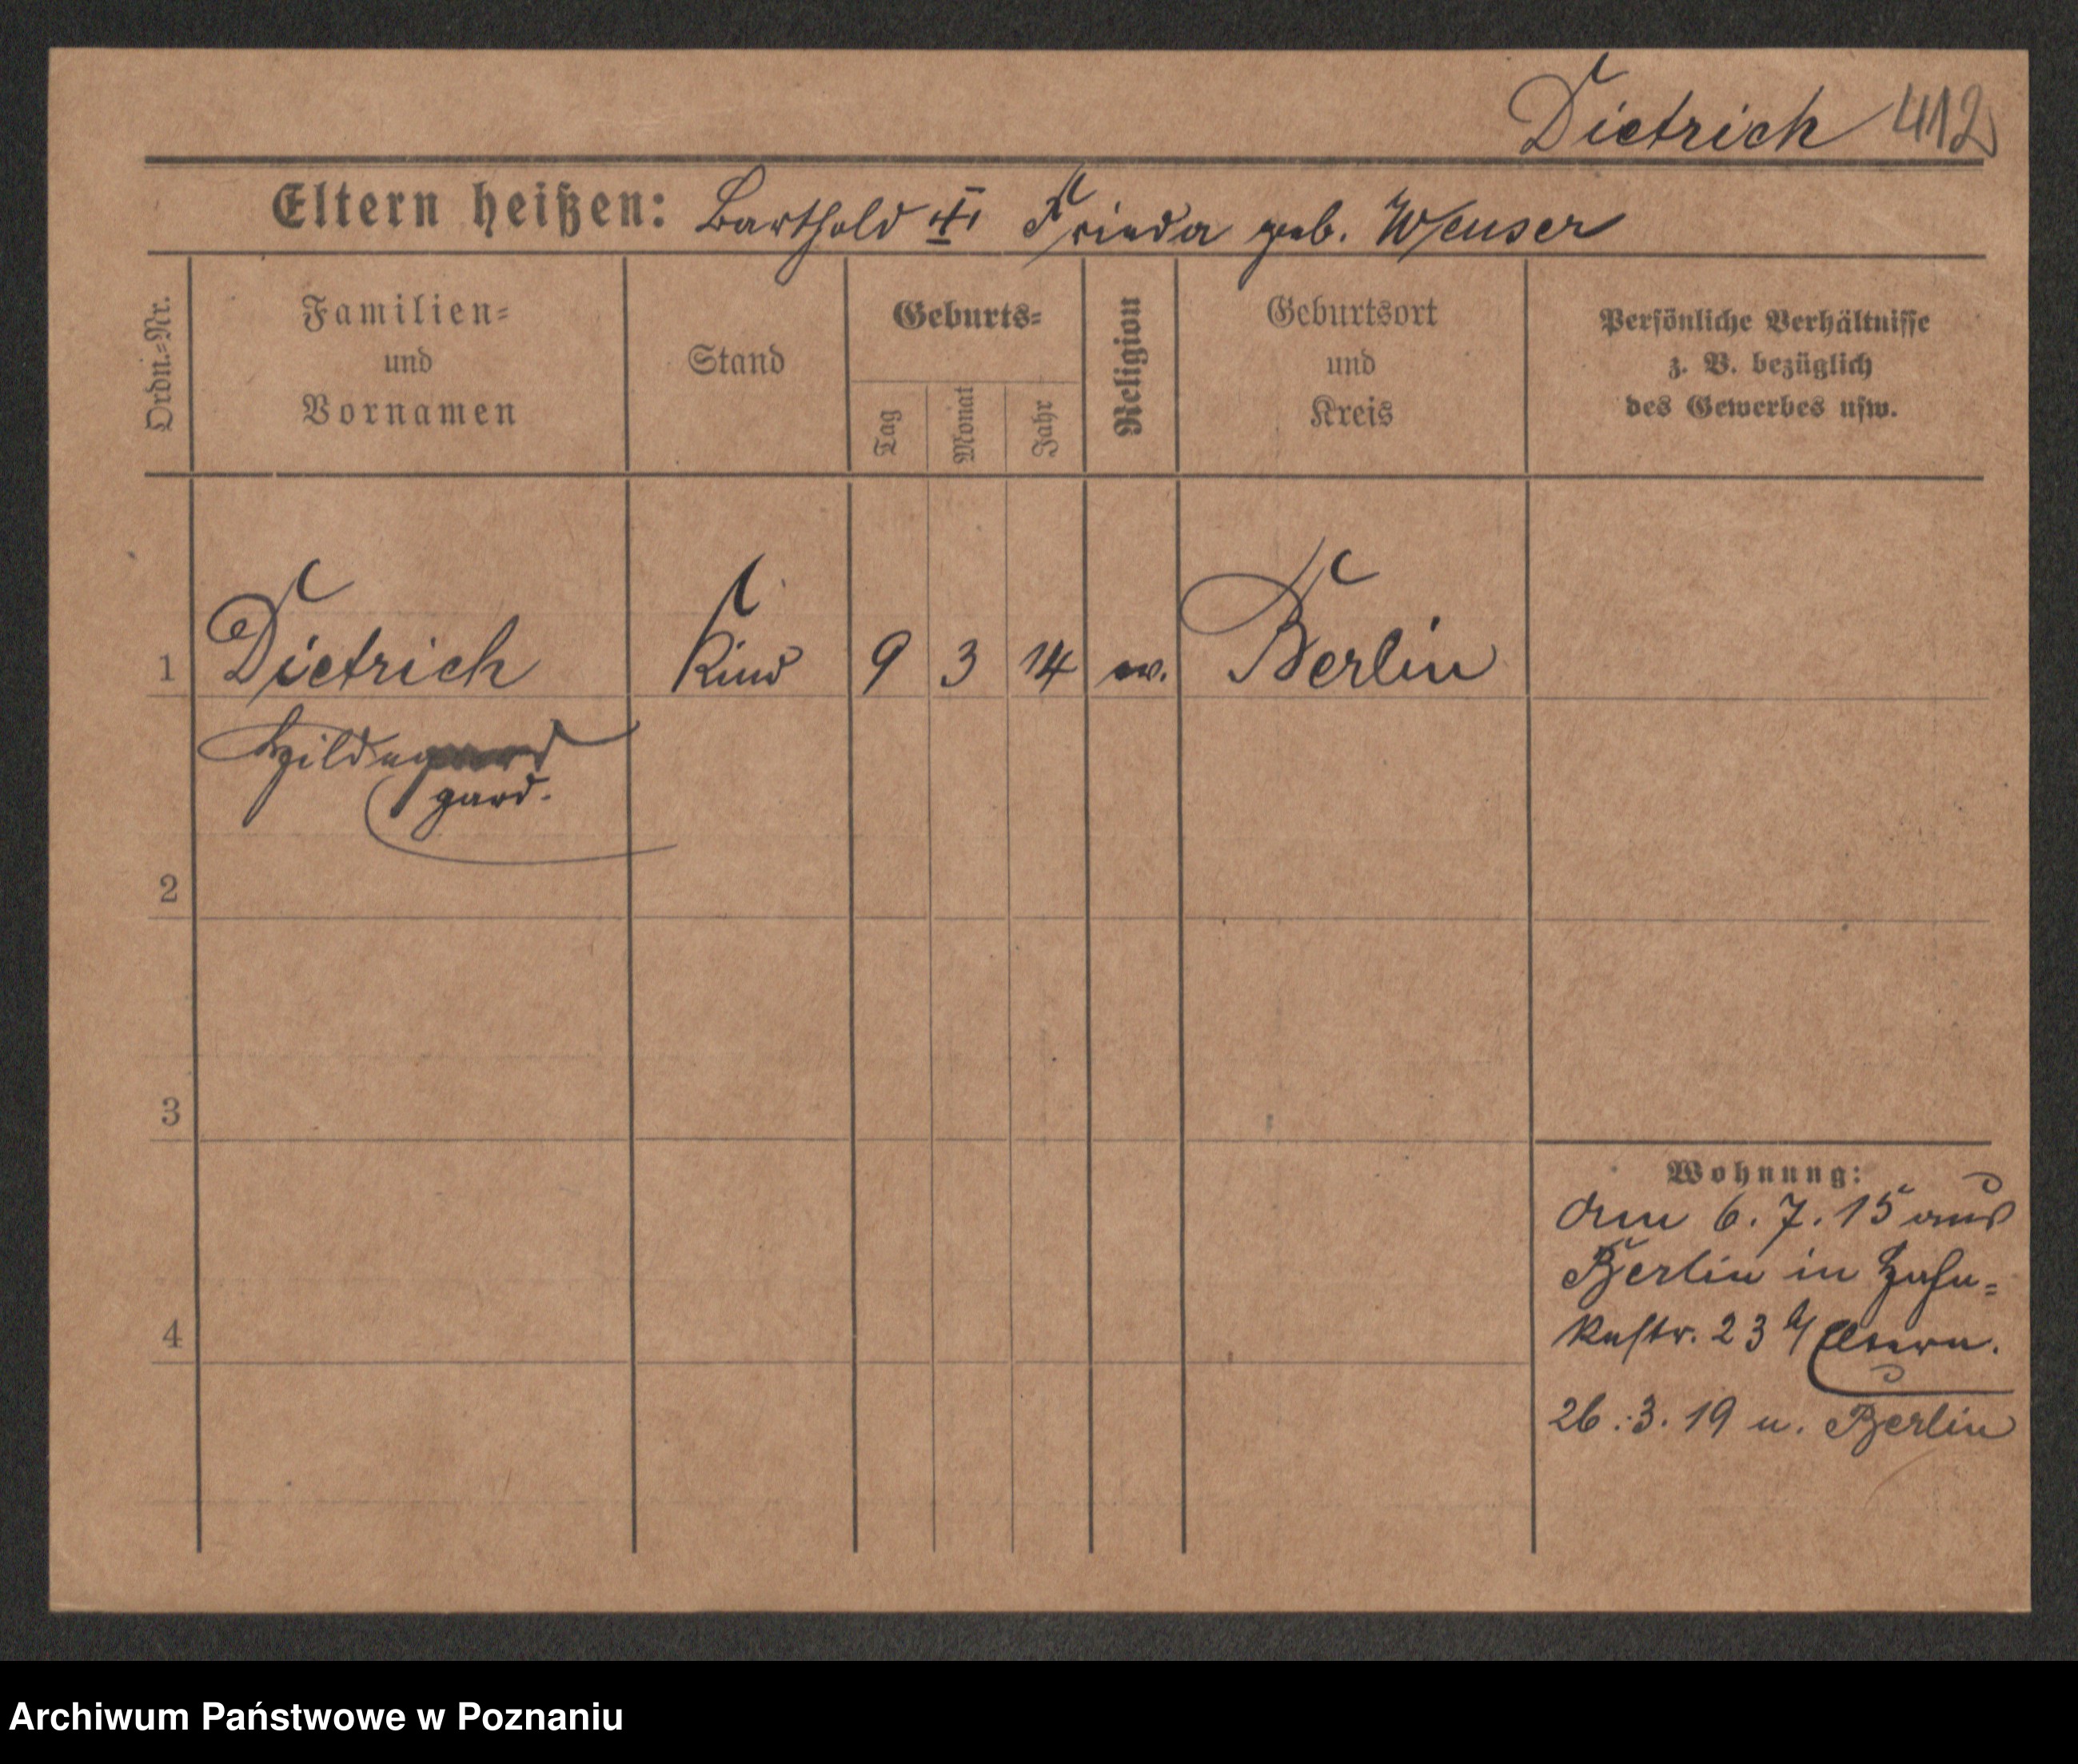 Dietrich 412
Eltern heißen: Barthold Frieda geb. Weuser
Ordn.=Nr.
Familien=
und
Vornamen
Stand
Geburts=
Tag
Monat
Jahr
Religion
Geburtsort
und
Kreis
Persönliche Verhältnisse
z. B. bezüglich
des Gewerbes usw.
1 Dietrich Kind 9 3 14 ev. Berlin
Hildegard
gard.
2
3
4
Wohnung:
Am 6. 7. 15 aus
Berlin in
str. 23 Eltern.
26. 3. 19 n. Berlin
Archiwum Państwowe w Poznaniu